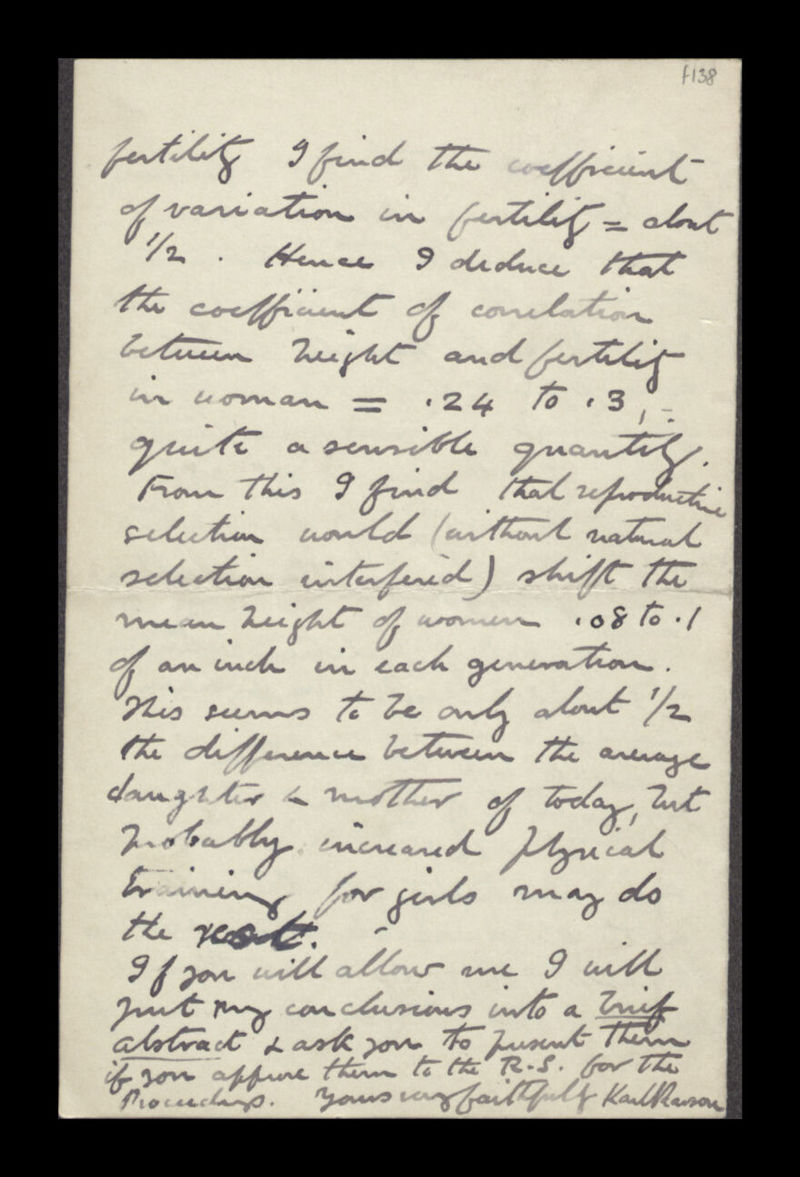 f138
fertility I find the coefficient
of variation in fertility = about
1/2 . Hence I deduce that
the coefficient of correlation
between height and fertility
in woman = .24 to .3, -
quite a sensible quantity.
From this I find that reproductive
selection would (without natural
selection interfered) shift the
mean height of women .08 to .1
of an inch in each generation.
This seems to be only about 1/2
the difference between the average
daughter & mother of today, but
probably increased physical
training for girls may do
the rest.
If you will allow me I will
put my conclusions into a brief
abstract & ask you to present them
if you approve them to the R.S. for the
Proceedings. Yours very faithfully Karl Pearson